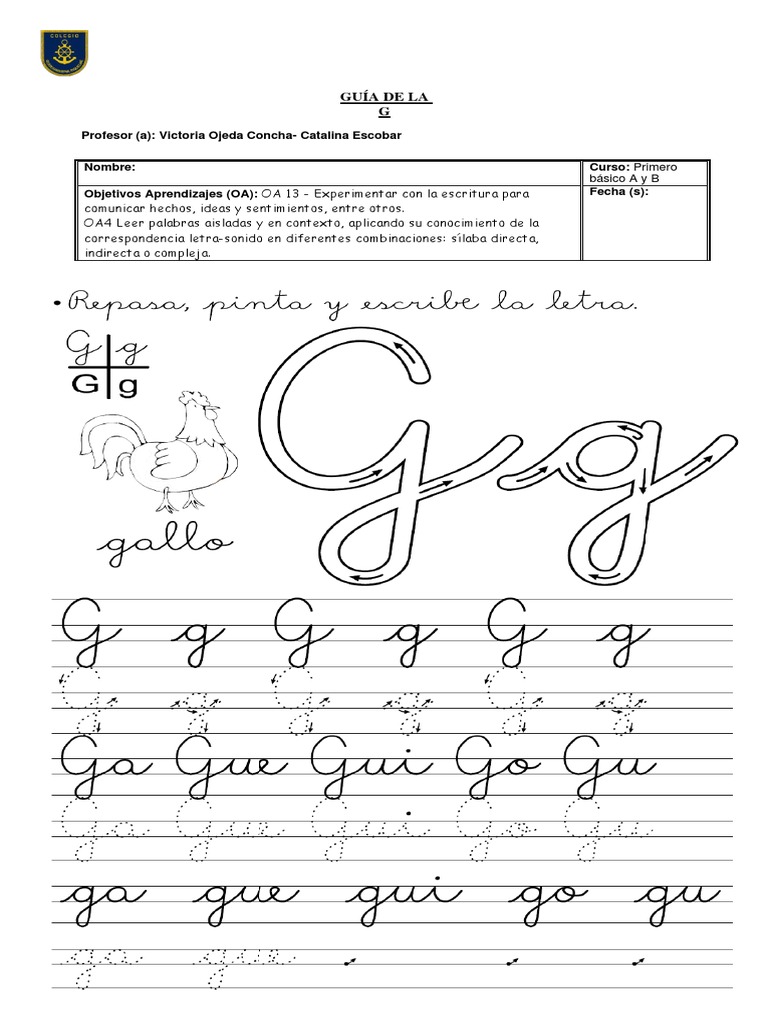 COLEGIO
GUÍA DE LA
G
Profesor (a): Victoria Ojeda Concha- Catalina Escobar
Nombre:
Curso: Primero
básico A y B
Objetivos Aprendizajes (OA): OA 13 - Experimentar con la escritura para
comunicar hechos, ideas y sentimientos, entre otros.
OA4 Leer palabras aisladas y en contexto, aplicando su conocimiento de la
correspondencia letra-sonido en diferentes combinaciones: sílaba directa,
indirecta o compleja.
Fecha (s):
• Repasa, pinta y escribe la letra.
G g
G g
gallo
G g
G g G g G g
G g G g G g
Ga Gue Gui Go Gu
Ga Gue Gui Go Gu
ga gue gui go gu
ga gue